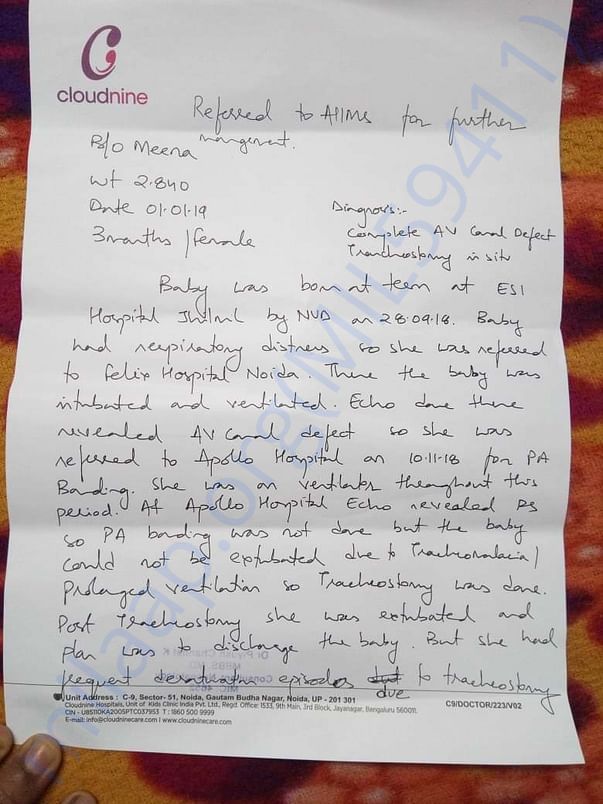 cloudnine
Referred to AIIMS for further
mangement.
B/O Meena
wt 2.840
Date 01.01.19
3 months / female
Diagnosis:-
Complete AV Canal Defect
Tracheostomy in situ
Baby was born at term at ESI
Hospital Jhilmil by NVD on 28.09.18. Baby
had respiratory distress so she was referred
to Felix Hospital Noida. There the baby was
intubated and ventilated. Echo done there
revealed AV Canal defect so she was
referred to Apollo Hospital on 10.11.18 for PA
Banding. She was on ventilator throughout this
period. At Apollo Hospital Echo revealed PS
so PA banding was not done but the baby
could not be extubated due to Tracheomalacia /
Prolonged ventilation so Tracheostomy was done.
Post Tracheostomy she was extubated and
plan was to discharge the baby. But she had
frequent desaturation episodes due to tracheostomy
Unit Address : C-9, Sector- 51, Noida, Gautam Budha Nagar, Noida, UP - 201 301
Cloudnine Hospitals, Unit of Kids Clinic India Pvt. Ltd., Regd. Office: 1533, 9th Main, 3rd Block, Jayanagar, Bengaluru 560011.
CIN - U85110KA2005PTC037953 T : 1860 500 9999
E-mail: info@cloudninecare.com | www.cloudninecare.com
C9/DOCTOR/223/V02
milaap.org(MIL59411)